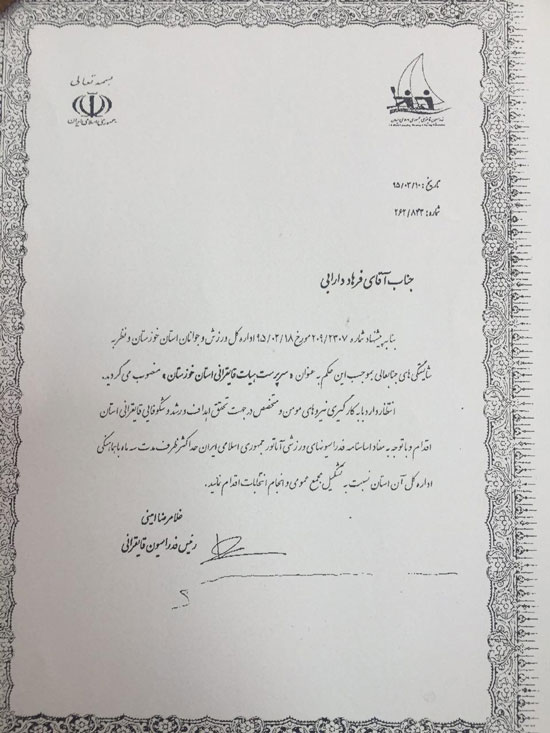 بسمه تعالی
جمهوری اسلامی ایران
تاریخ: ۹۵/۰۳/۱۰
شماره: ۲۶۲/۸۴۳
جناب آقای فرهاد دارابی
بنا به پیشنهاد شماره ۲۰۹/۲۳۰۷ مورخ ۹۵/۰۲/۱۸ اداره کل ورزش و جوانان استان خوزستان و نظر به
شایستگی های جنابعالی بموجب این حکم به عنوان «سرپرست هیات قایقرانی استان خوزستان» منصوب می گردید.
انتظار دارد با به کارگیری نیروهای مومن و متخصص در جهت تحقق اهداف و رشد و شکوفایی قایقرانی استان
اقدام و با توجه به مفاد اساسنامه فدراسیونهای ورزشی آماتور جمهوری اسلامی ایران حداکثر ظرف مدت سه ماه با هماهنگی
اداره کل آن استان نسبت به تشکیل مجمع عمومی و انجام انتخابات اقدام نمایید.
غلامرضا امینی
رئیس فدراسیون قایقرانی